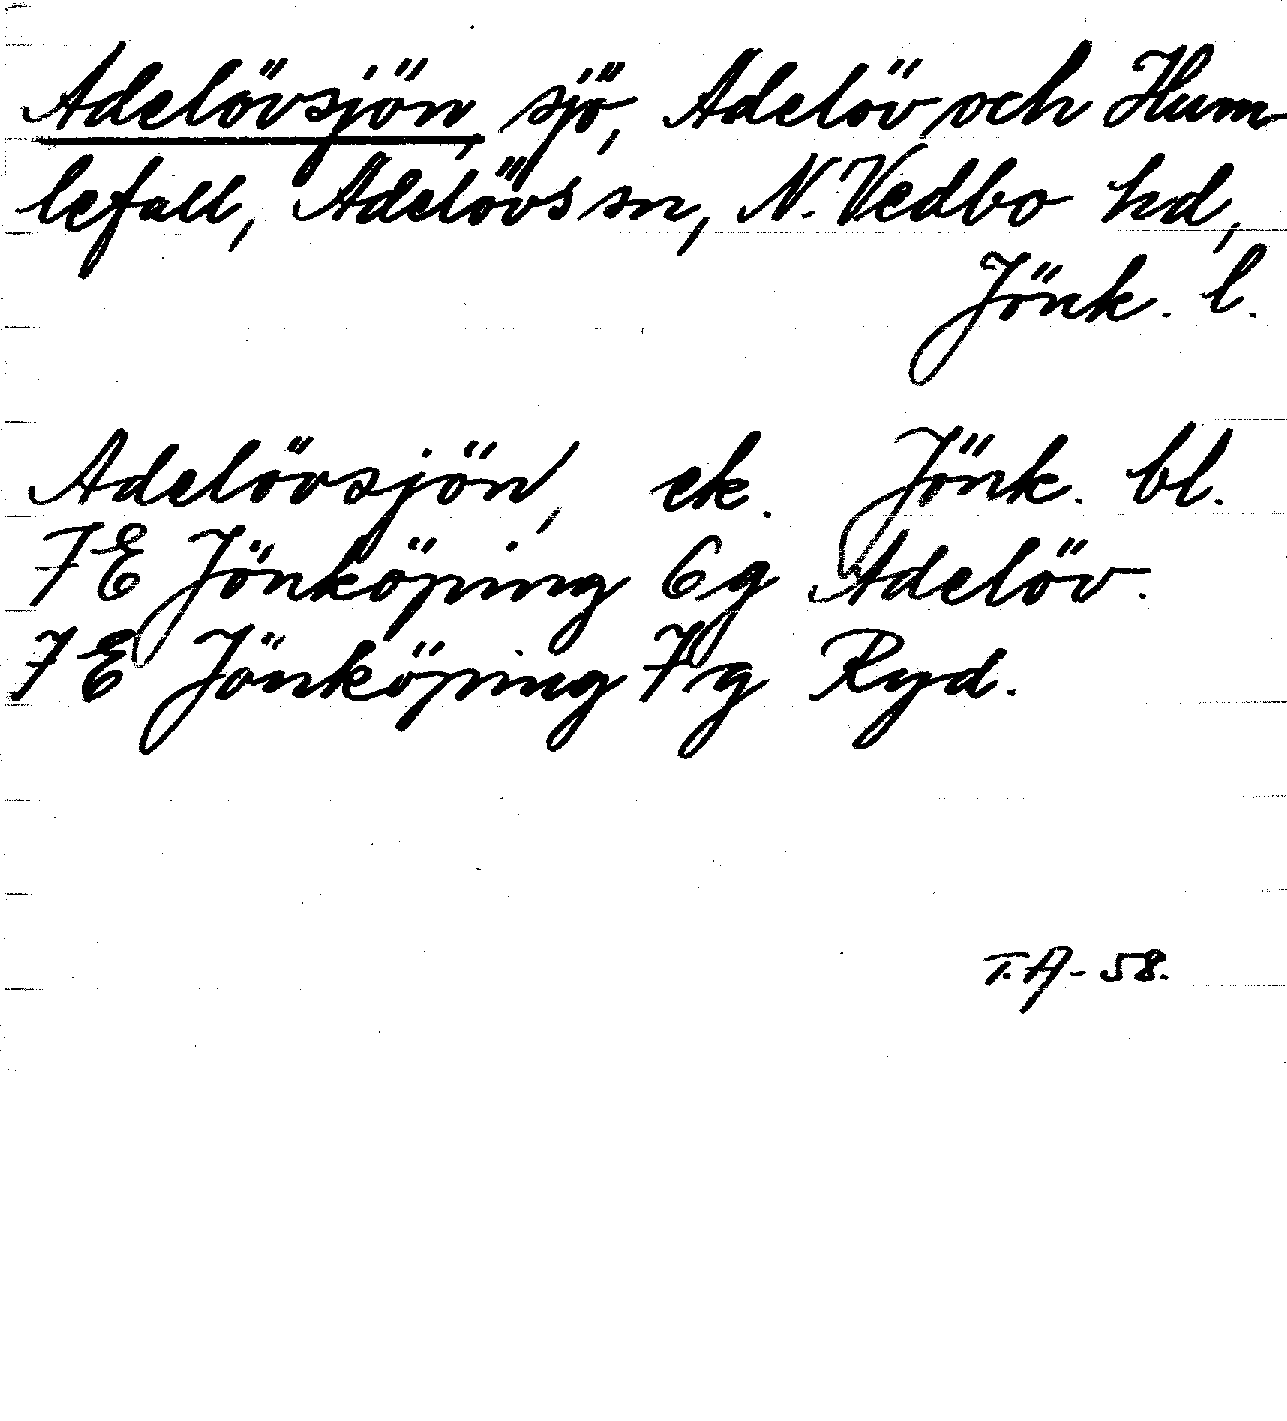 Adelövsjön, sjö, Adelöv och Hum-
lefall, Adelövs sn, N. Vedbo hd,
Jönk. l.
Adelövsjön, ek. Jönk. bl.
7E Jönköping 6g Adelöv.
7E Jönköping 7g Ryd.
T.A-58.